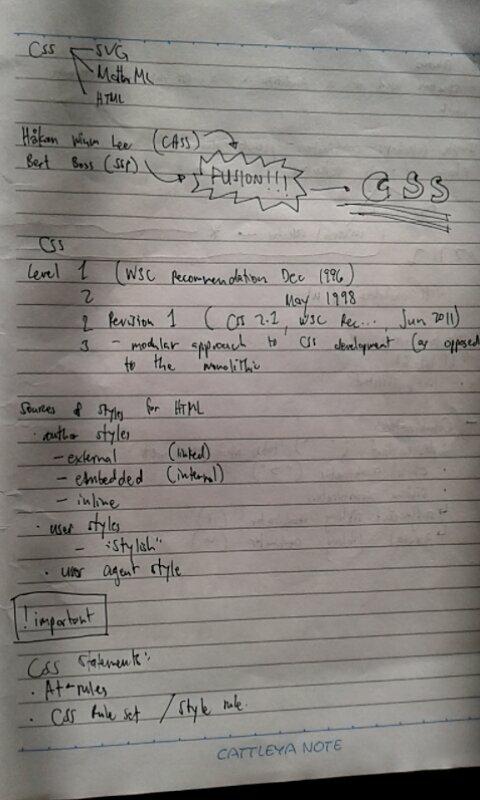 CSS SVG
MathML
HTML
Håkon Wium Lee (CASS)
Bert Boss (SSP)
FUSION!!!
CSS
CSS
Level 1 (W3C Recommendation Dec 1996)
2 May 1998
2 Revision 1 ( CSS 2.1, W3C Rec..., Jun 2011)
3 - modular approach to CSS development (as opposed
to the monolithic
Sources of styles for HTML
· author styles
- external (linked)
- embedded (internal)
- inline
· user styles
- "Stylish"
· user agent style
!important
CSS Statements:
· At-rules
· CSS Rule set / Style rule.
CATTLEYA NOTE